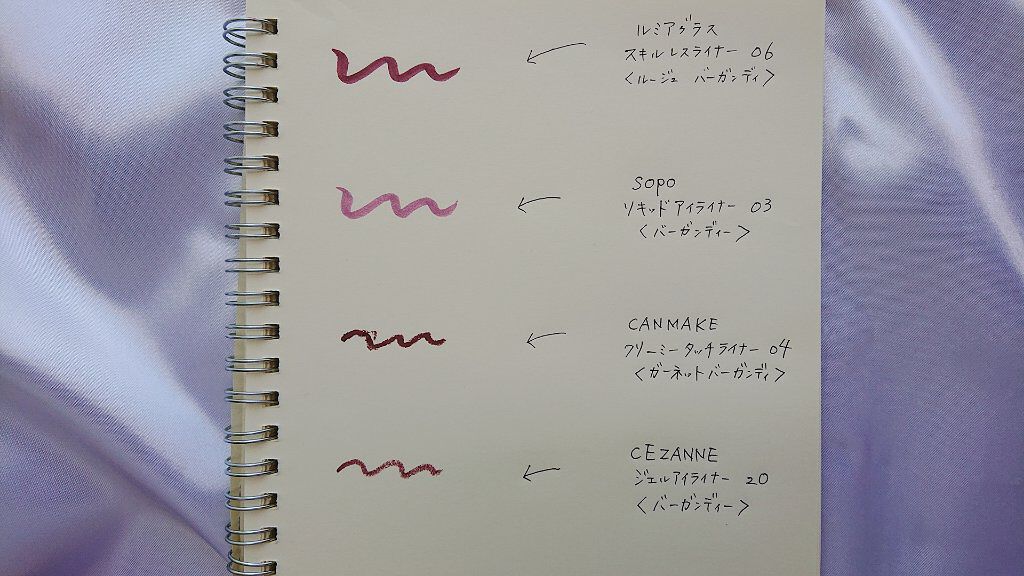 ルミアグラス
スキルレスライナー 06
＜ルージュ バーガンディ＞
sopo
リキッドアイライナー 03
＜バーガンディー＞
CANMAKE
クリーミータッチライナー 04
＜ガーネットバーガンディ＞
CEZANNE
ジェルアイライナー 20
＜バーガンディー＞